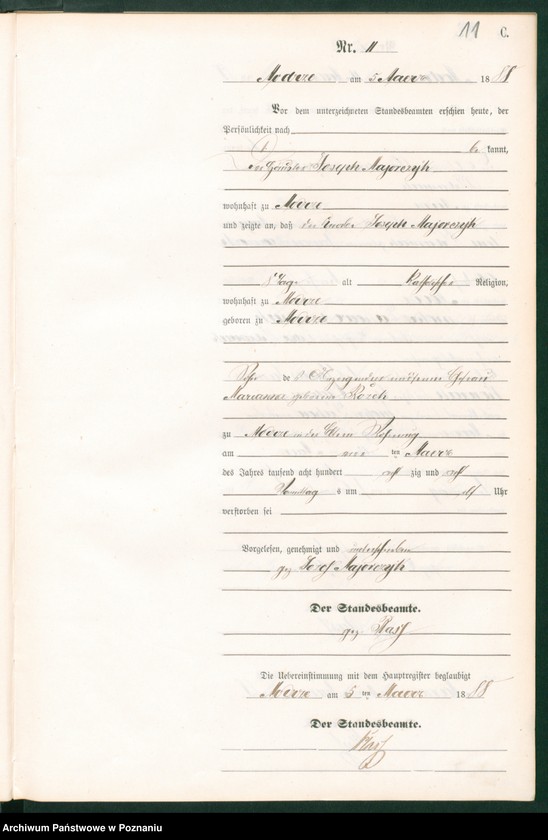 11 C.
Nr. 11
Modrze am 5 Maerz 1888
Vor dem unterzeichneten Standesbeamten erschien heute, der
Persönlichkeit nach
be kannt,
der Häusler Joseph Majorczyk
wohnhaft zu Modrze
und zeigte an, daß der Joseph Majorczyk
5 Tage alt katholischer Religion,
wohnhaft zu Modrze
geboren zu Modrze
Sohn de s Anzeigenden und seiner Ehefrau
Marianna geborene
zu Modrze in der Wohnung
am ten Maerz
des Jahres tausend acht hundert acht zig und acht
mittag s um Uhr
verstorben sei
Vorgelesen, genehmigt und unterschrieben
gez Majorczyk
Der Standesbeamte.
gez
Die Uebereinstimmung mit dem Hauptregister beglaubigt
Modrze am 5 ten Maerz 1888
Der Standesbeamte.
Archiwum Państwowe w Poznaniu